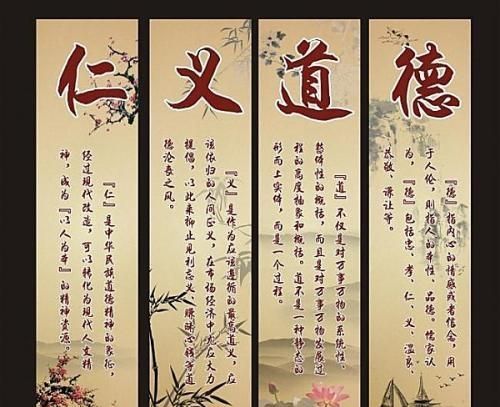 仁
『仁』是中华民族道德精神的象征，
经过现代改造，可以转化为现代人文精
神，成为『以人为本』的精神资源。
义
『义』是作为应该遵循的最高道义，应
该依归的人间正义，在市场经济中尤应大力
提倡，以此来抑止见利忘义、昧心钱等道
德沦丧之风。
道
『道』不仅是对万事万物的系统性、
整体性的概括，而且是对万事万物发展过
程的高度抽象和概括。道不是一种静态的
形而上实体，而是一个过程。
德
『德』指内心的情感或者信念，用
于人伦，则指人的本性、品德。儒家认
为，『德』包括忠、孝、仁、义、温良、
恭敬、谦让等。